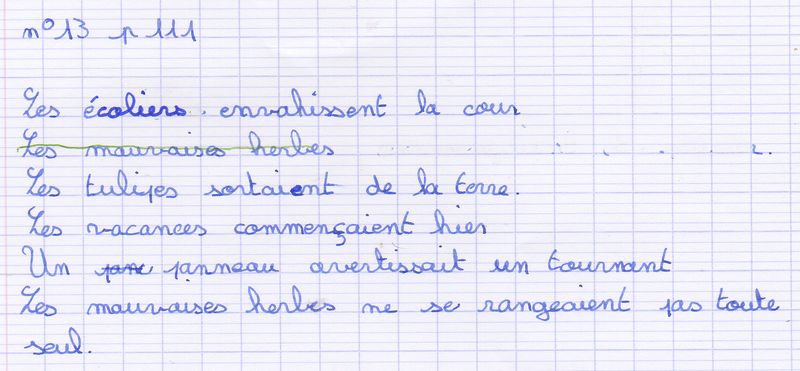 n° 13 p 111
Les écoliers envahissent la cour
Les mauvaises herbes
Les tulipes sortaient de la terre.
Les vacances commençaient hier
Un panneau avertissait un tournant
Les mauvaises herbes ne se rangeaient pas toute
seul.